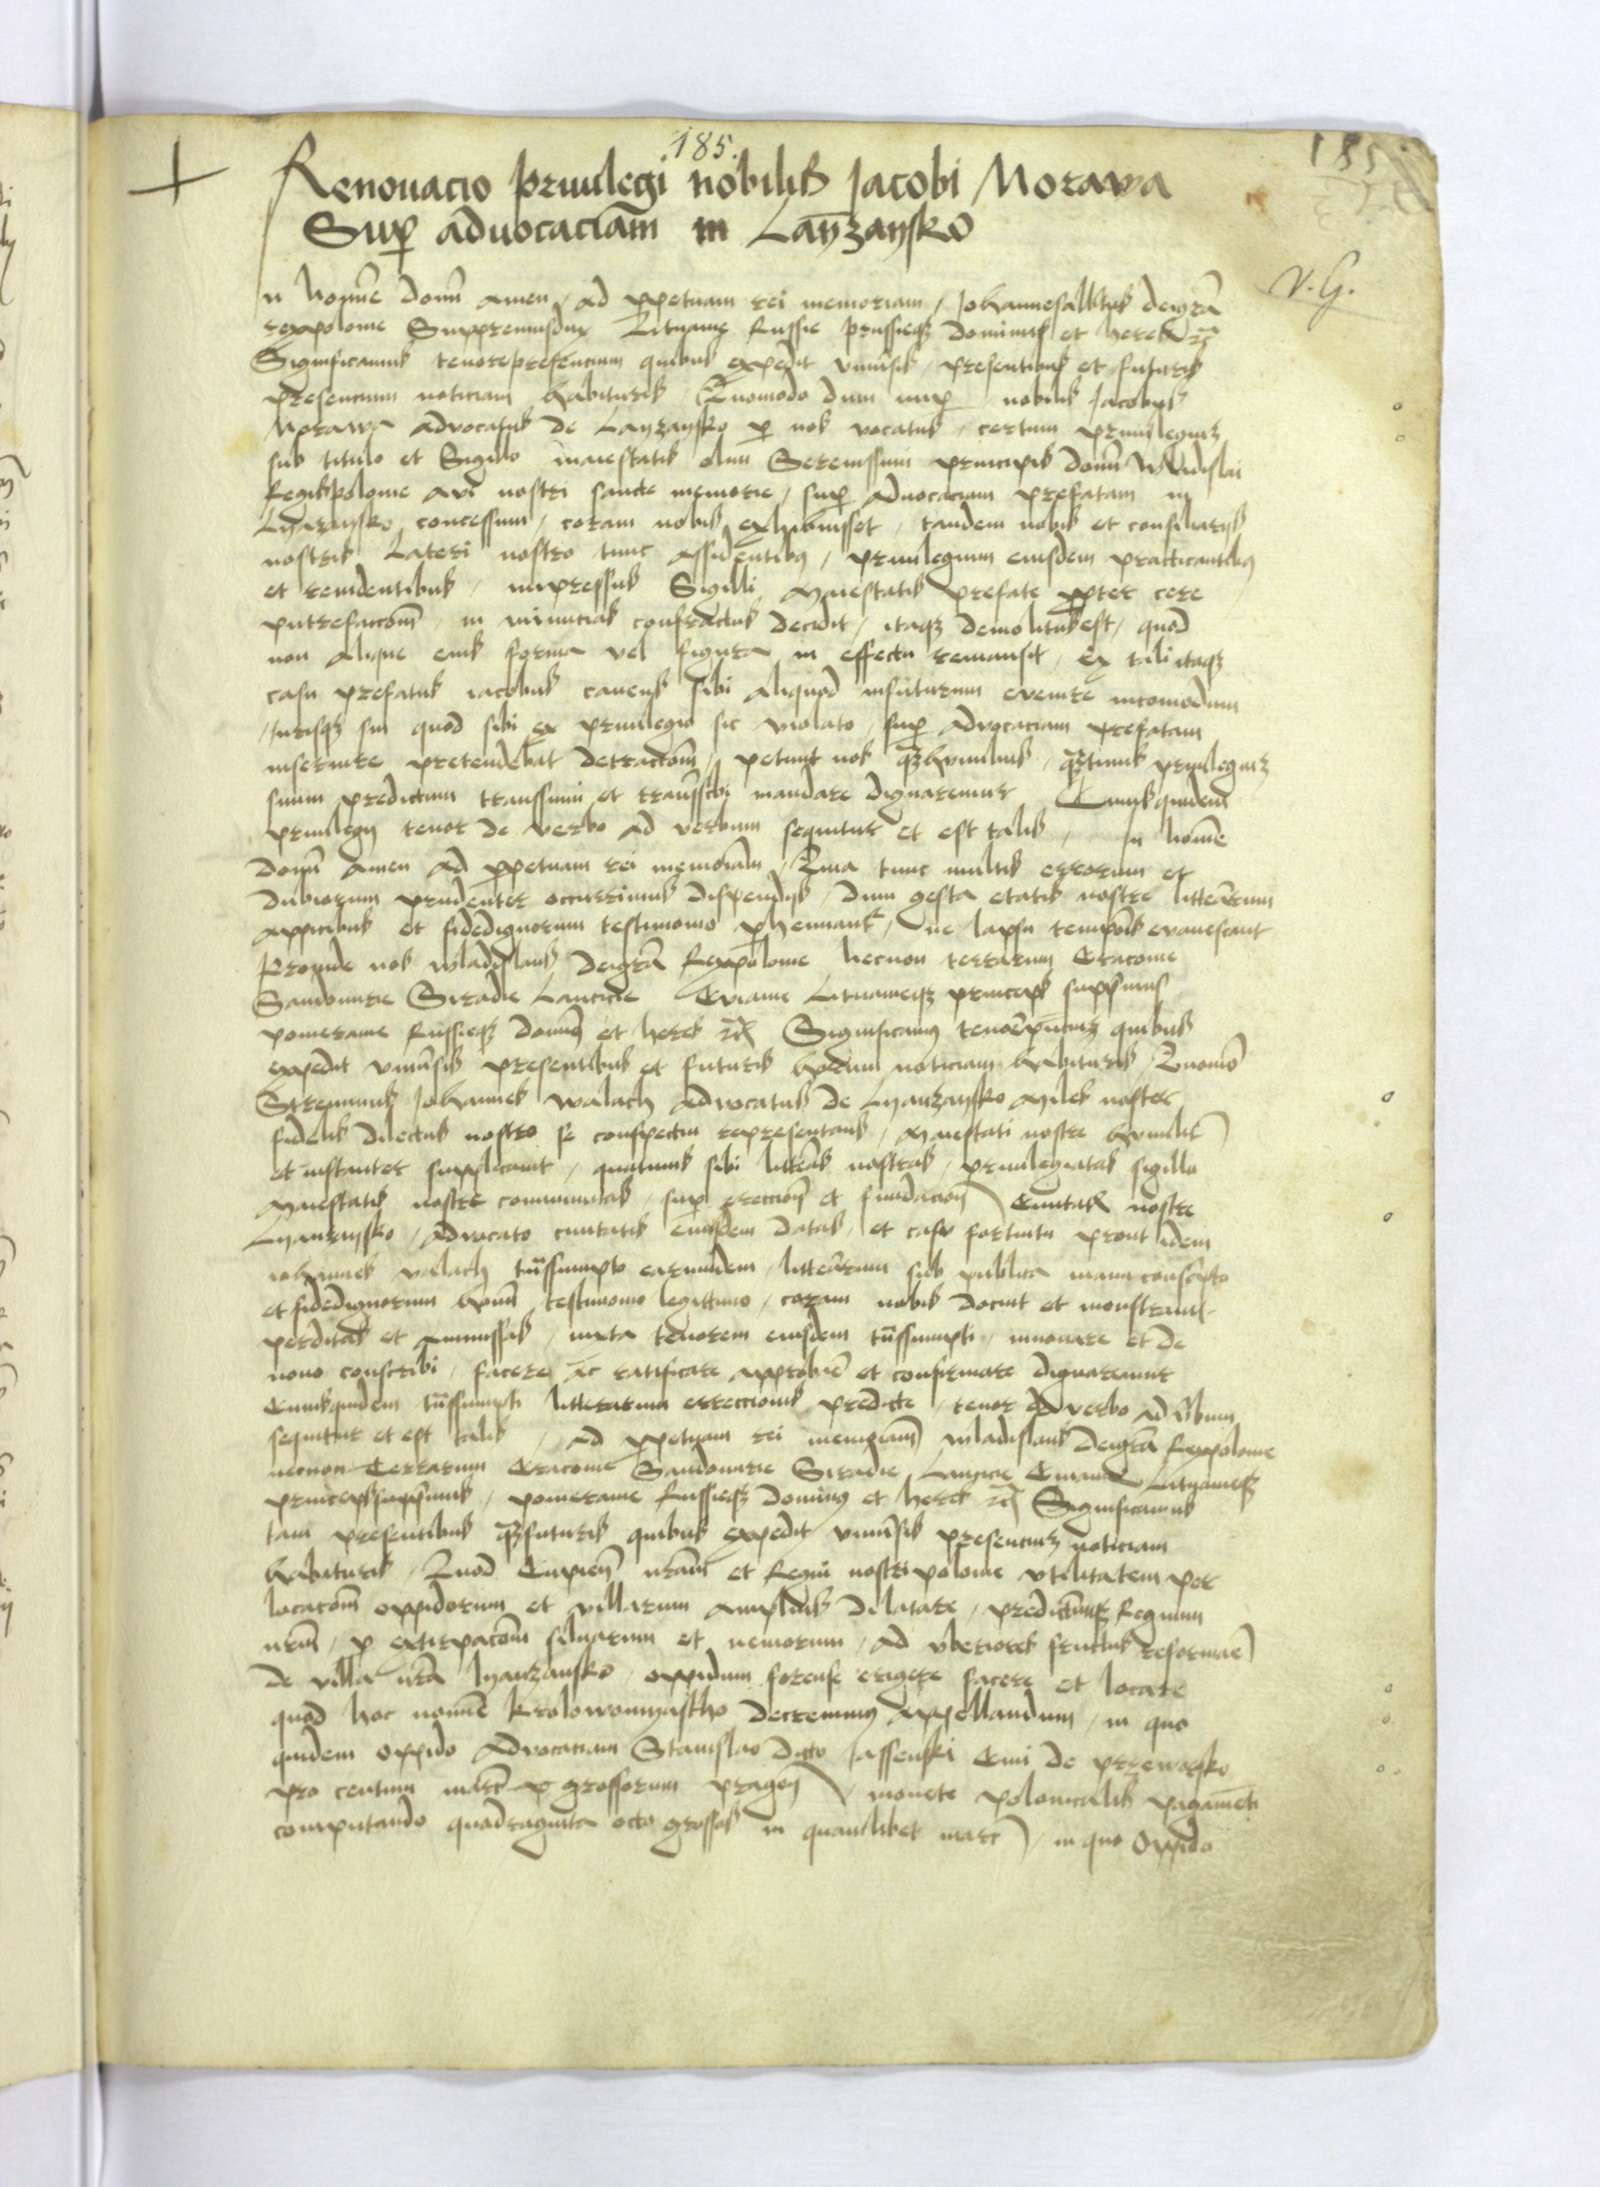 185.
185
Renouacio priuilegi nobilis Jacobi Morawa
Sup aduocaciam in Lanzansko
V. G.
n nomine domini amen ad ppetuam rei memoriam Johannes albertus dei gra
rex polonie Suppremus dux Lituanie Russie prussieqz dominus et heres etc
Significamus tenore presencium quibus expedit vniuersis presentibus et futuris
presencium noticiam habituris Quomodo dum nup nobilis Jacobus
Morawa aduocatus de Lanzansko p nos vocatus certum priuilegium
sub titulo et Sigillo maiestatis olim Serenissimi principis domini Wladislai
Regis polonie aui nostri sancte memorie sup aduocaciam prefatam in
Lyanzansko concessum coram nobis exhibuisset tandem nobis et consiliarijs
nostris Lateri nostro tunc assidentibus priuilegium eiusdem practicantibus
et reuidentibus impressus Sigilli Maiestatis prefate ppter cere
putrefaccom in minucias confractus decidit itaqz demolitus est quod
non alique eius forma vel figura in effectu remansit Ex tali itaqz
casu prefatus iacobus cauens sibi aliquod in futurum euenire incomodum
Jurisqz sui quod sibi ex priuilegio sic violato sup aduocaciam prefatam
inseruire pretendebat detractom petiuit nos qz humiliter qztinus priuilegium
suum predictum transsumi et transscribi mandare dignaremur Cuiusquidem
priuilegij tenor de verbo ad verbum sequitur et est talis In nomine
domini Amen Ad ppetuam rei memoriam Quia tunc multis errorum et
dubiorum prudenter occurrimus dispendijs dum gesta etatis nostre litterarum
appicibus et fidedignorum testimonio phennantur ne lapsu temporis euanescant
Proinde nos wladislaus dei gra Rex polonie necnon terrarum Cracouie
Sandomirie Siradie Lancicie Cuiauie Lituanieqz princeps suppremus
pomeranie Russieqz dominus et heres etc Significamus tenore presencium quibus
expedit vniuersis presentibus et futuris horum noticiam habituris Quomodo
Strennuus Johannes walach Aduocatus de Lyanzansko Miles noster
fidelis dilectus nostro se conspectui representans Maiestati nostre humiliter
et instanter supplicauit quatinus sibi litteras nostras priuilegiatas sigillo
Maiestatis nostre communitas sup ereccione et fundacione Ciuitatis nostre
Lyanzansko Aduocato ciuitatis eiusdem datas et casu fortuito prout idem
iohannes valach transsumpto earundem litterarum sub publica manu conscripto
et fidedignorum hominum testimonio legittimo coram nobis docuit et monstrauit
perditas et amissas iuxta tenorem eiusdem transsumpti innouare et de
nouo conscribi facere ac ratificare approbare et confirmare dignaremur
Cuiusquidem transsumpti litterarum erreccionis predicte tenor de verbo ad verbum
sequitur et est talis Ad ppetuam rei memoriam wladislaus dei gra Rex polonie
necnon Terrarum Cracouie Sandomirie Siradie Lancicie Cuiauie Lituanieqz
princeps suppremus pomeranie Russieqz dominus et heres etc Significamus
tam presentibus qz futuris quibus expedit vniuersis presencium noticiam
habituris Quod Cupientes nram et Regni nostri polonie vtilitatem per
locacom oppidorum et villarum amplius dilatare predictumqz Regnum
nrm p extirpacom siluarum et nemorum ad vberiores fructus reformare
de villa nra lyanzansko oppidum forense erigere facere et locare
quod hoc nomine krolowomyastho decreuimus appellandum in quo
quidem oppido Aduocaciam Stanislao dicto Jassenski Ciui de przeworsko
pro centum marc grossorum pragen monete polonicalis pagamenti
computando quadraginta octo grossos in quamlibet marc in quo Oppido